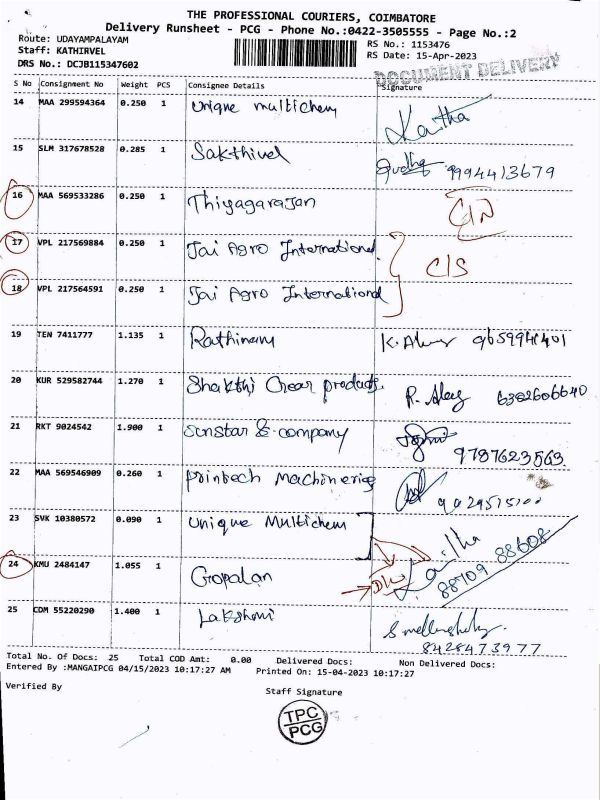 THE PROFESSIONAL COURIERS, COIMBATORE
Delivery Runsheet - PCG - Phone No.:0422-3505555 - Page No.:2
Route: UDAYAMPALAYAM
Staff: KATHIRVEL
DRS No.: DCJB115347602
RS No.: 1153476
RS Date: 15-Apr-2023
DOCUMENT DELIVERY
S No Consignment No Weight PCS Consignee Details Signature
14 MAA 299594364 0.250 1 Unique multichem Kavitha
15 SLM 317678528 0.285 1 Sakthivel 9994413679
16 MAA 569533286 0.250 1 Thiyagarajan
17 VPL 217569884 0.250 1 Jai Agro International
C/S
18 VPL 217564591 0.250 1 Jai Agro International
19 TEN 7411777 1.135 1 Rathinam
20 KUR 529582744 1.270 1 Shakthi Gear products. 6382606640
21 RKT 9024542 1.900 1 Sunstar & company 9787623563
22 MAA 569546909 0.260 1 printech Machineries
23 SVK 10380572 0.090 1 Unique Multichem
24 KMU 2484147 1.055 1 Gopalan 88709 88608
25 CDM 55220290 1.400 1 Lakshmi 8428473977
Total No. Of Docs: 25 Total COD Amt: 0.00 Delivered Docs: Non Delivered Docs:
Entered By :MANGAIPCG 04/15/2023 10:17:27 AM Printed On: 15-04-2023 10:17:27
Verified By
Staff Signature
TPC
PCG